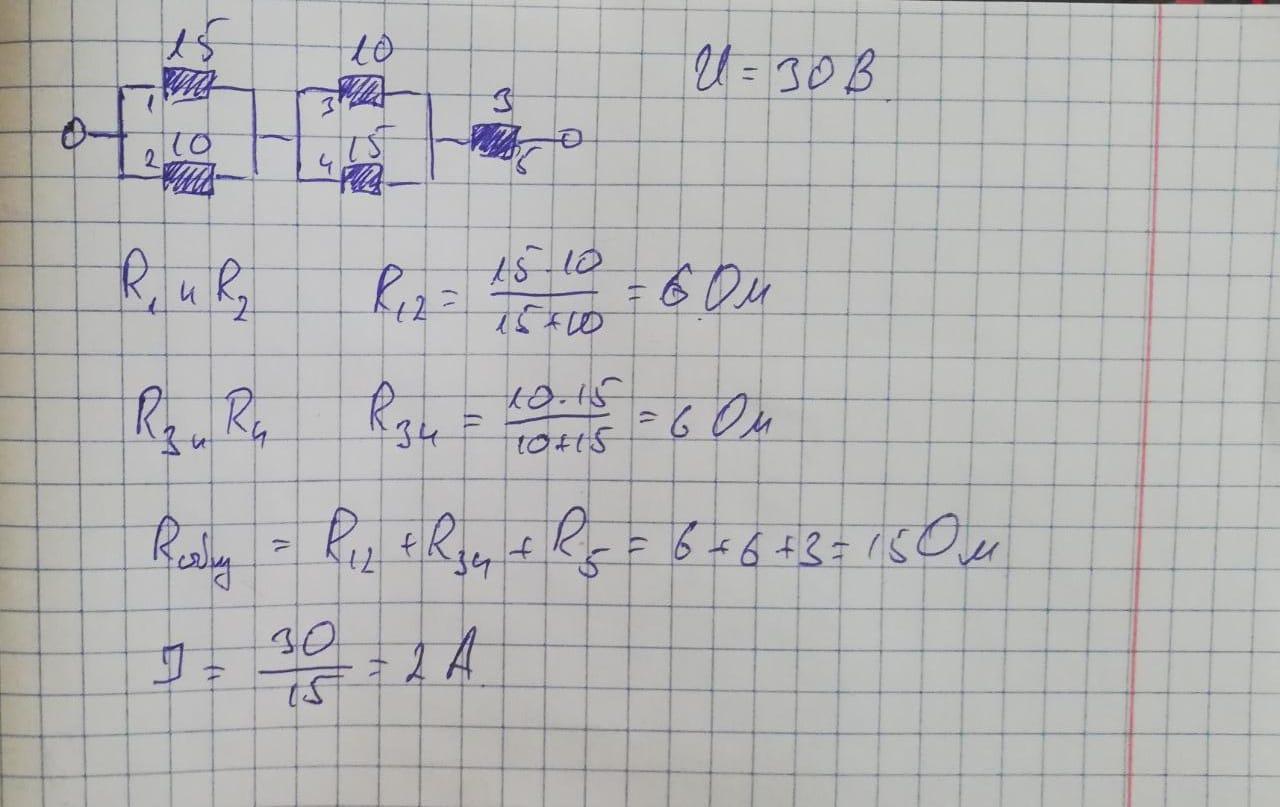 15 10 U = 30 В
1 3 3
2 10 4 15 5
R₁ и R₂ R₁₂ = (15 · 10)/(15 + 10) = 6 Ом
R₃ и R₄ R₃₄ = (10 · 15)/(10 + 15) = 6 Ом
Rобщ = R₁₂ + R₃₄ + R₅ = 6 + 6 + 3 = 15 Ом
I = 30/15 = 2 А